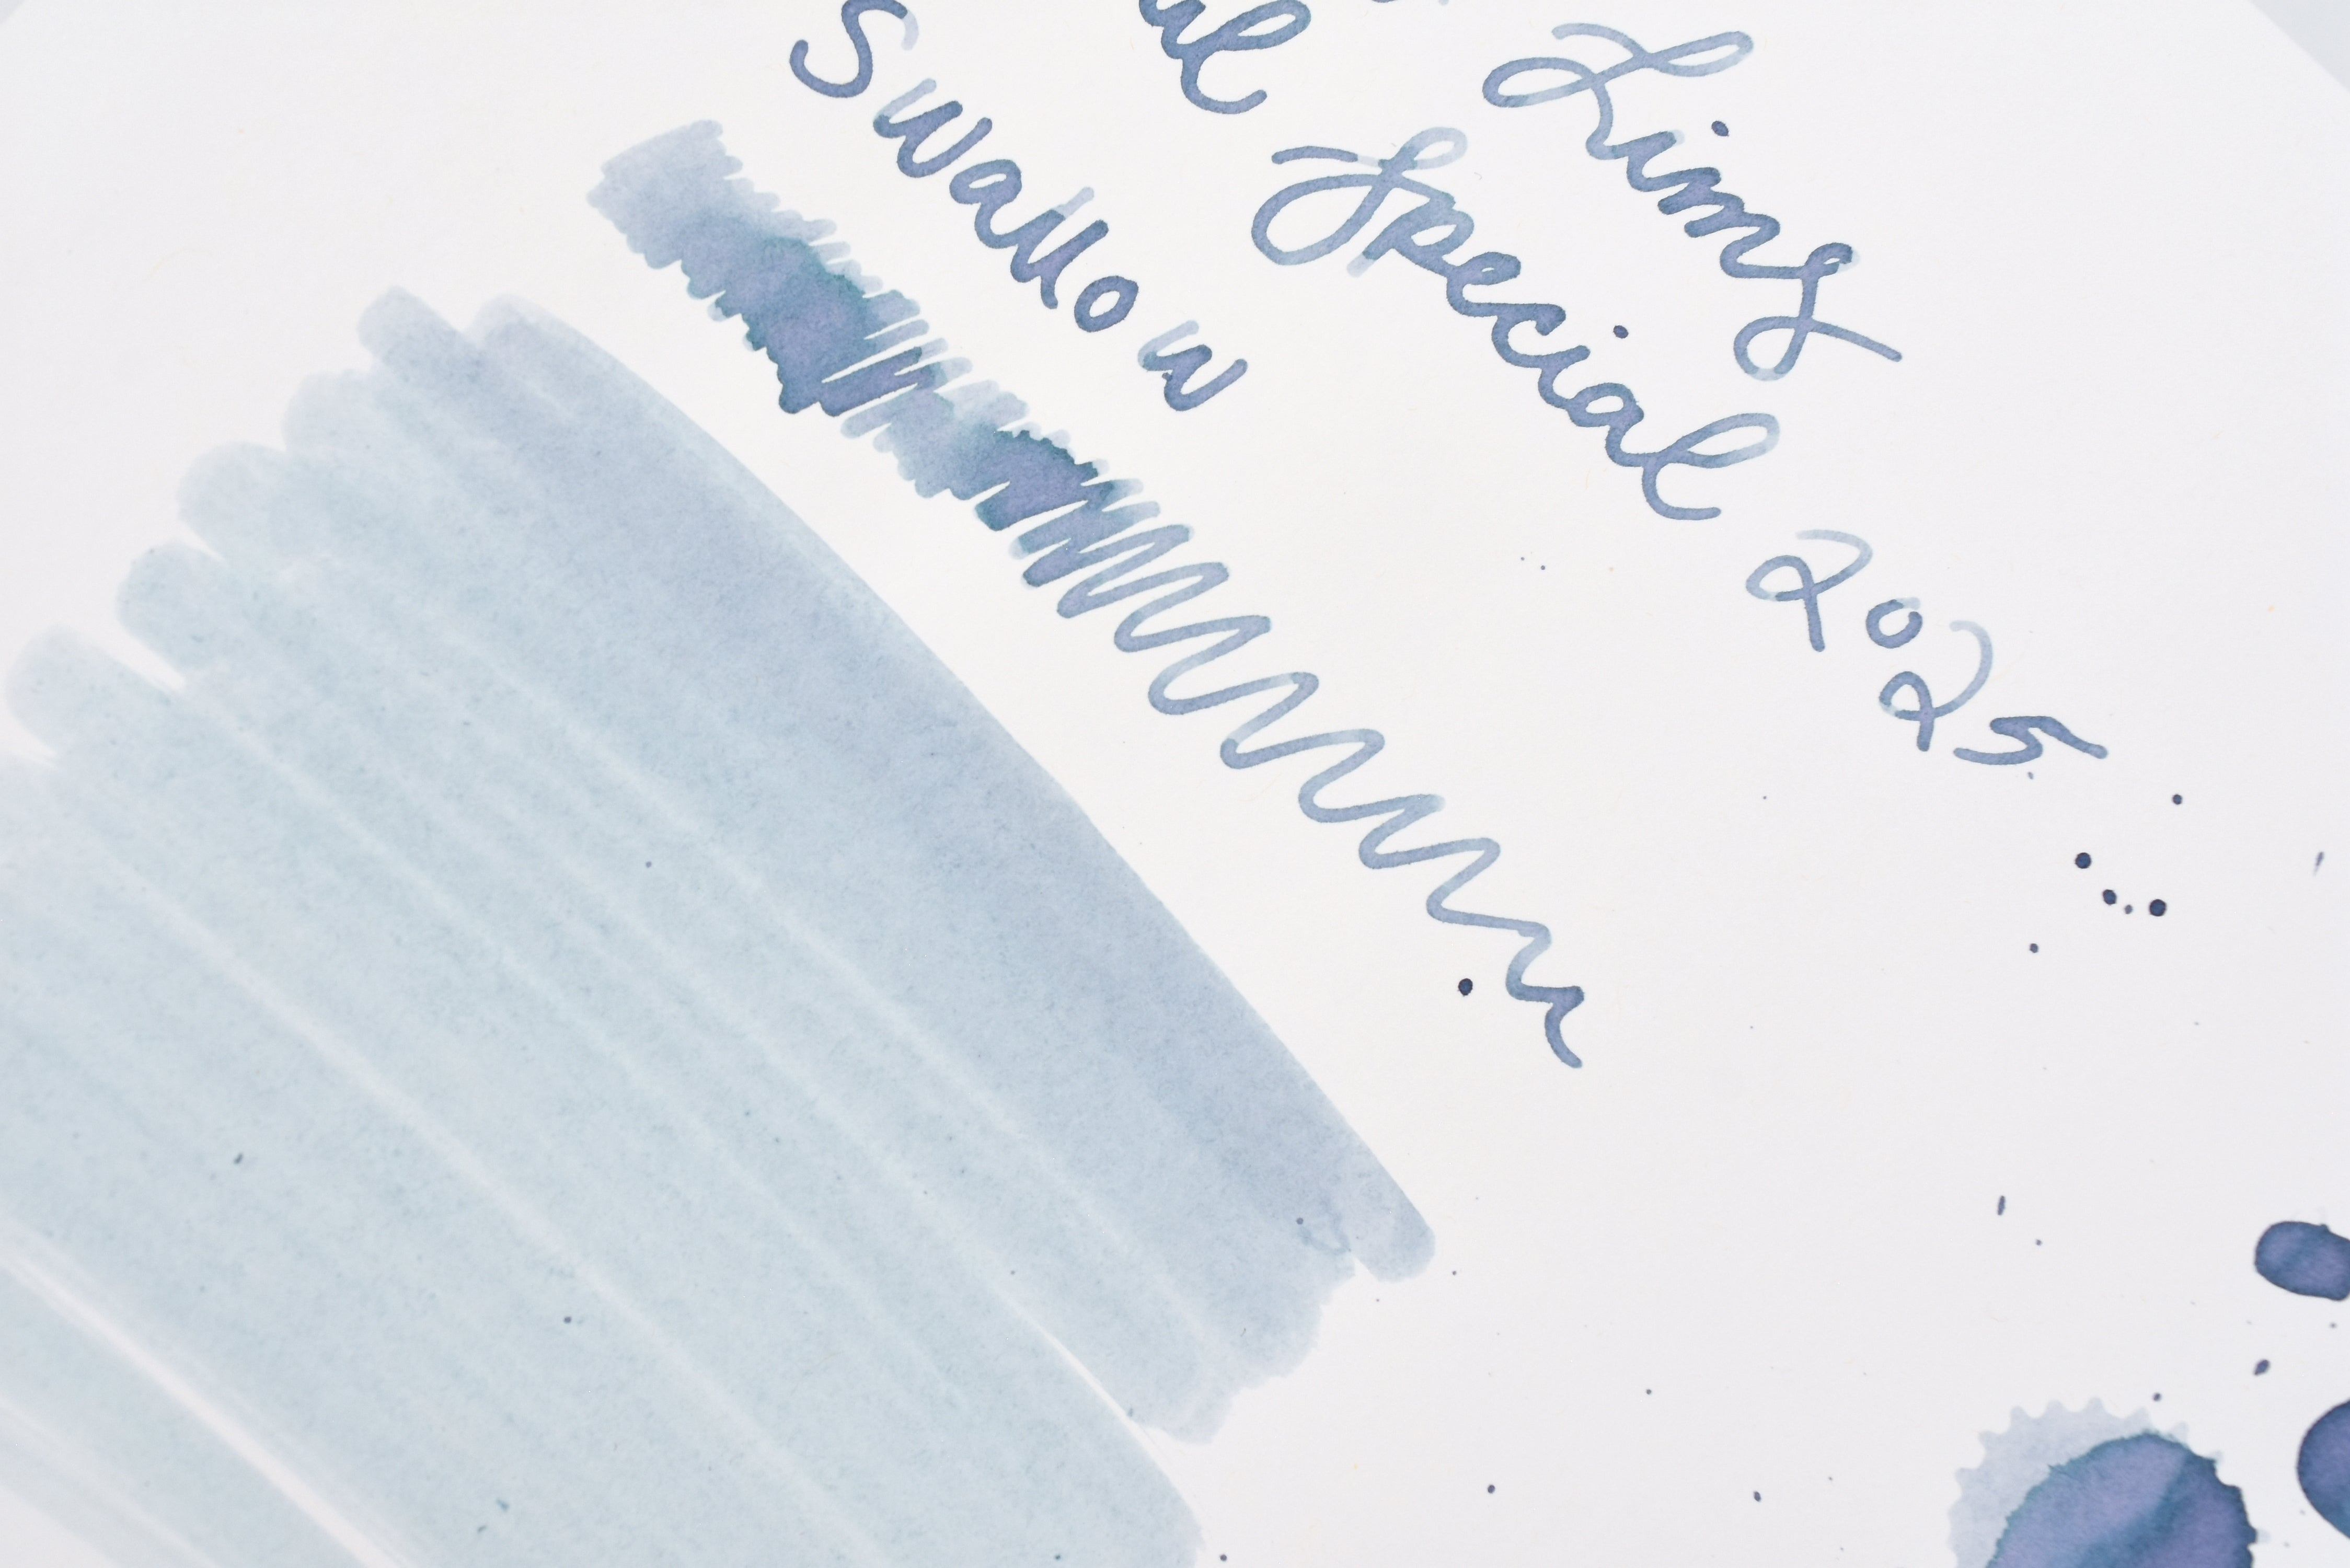 Ling
Special 2025
Swallow